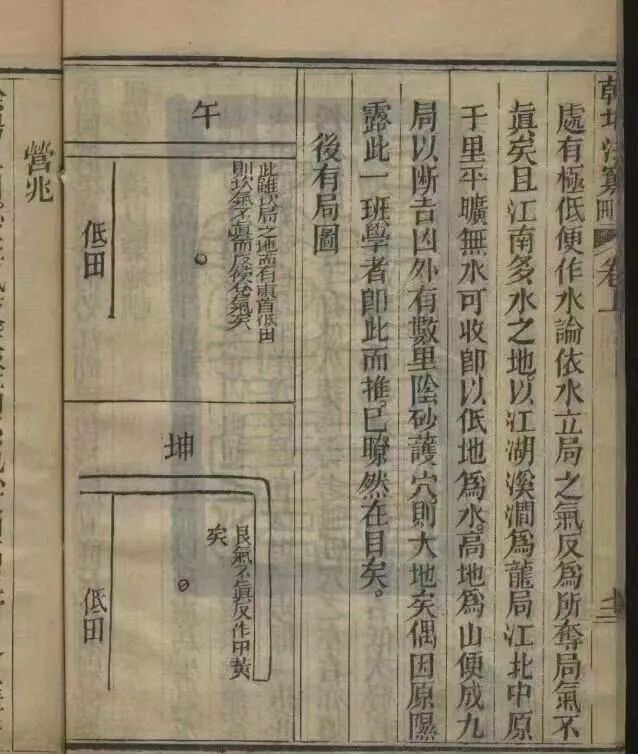 乾坤法竅 卷上
處有極低便作水論依水立局之氣反爲所奪局氣不
眞矣且江南多水之地。以江湖溪澗爲龍局江北中原
千里平曠無水可收卽以低地爲水。高地爲山便成九
局以断吉凶外有數里陰砂護穴。則大地矣偶因原
露此一班學者卽此而推。已瞭然在目矣。
後有局圖
午
此雖坎局之地而有東首低田
則坎氣不眞而反侵兌氣矣
低田
坤
艮氣不眞反作甲黃
矣
低田
營兆